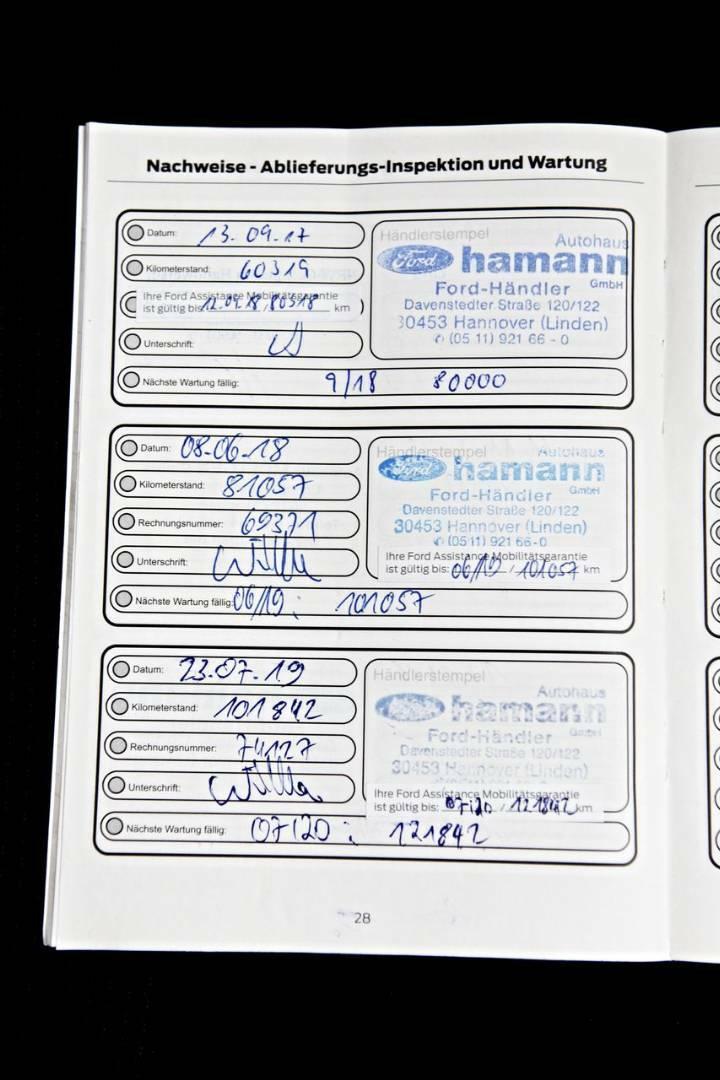 Nachweise - Ablieferungs-Inspektion und Wartung
Datum: 13.09.17
Kilometerstand: 60319
Ihre Ford Assistance Mobilitätsgarantie
ist gültig bis 12.09.18/80318 km
Unterschrift:
Nächste Wartung fällig: 9/18 80000
Händlerstempel
Autohaus
Ford hamann
GmbH
Ford-Händler
Davenstedter Straße 120/122
30453 Hannover (Linden)
✆ (05 11) 921 66 - 0
Datum: 08-06-18
Kilometerstand: 81057
Rechnungsnummer: 69371
Unterschrift:
Nächste Wartung fällig: 06/19: 101057
Händlerstempel
Autohaus
Ford hamann
Ford-Händler GmbH
Davenstedter Straße 120/122
30453 Hannover (Linden)
✆ (05 11) 921 66-0
Ihre Ford Assistance Mobilitätsgarantie
ist gültig bis: 06/19 / 101057 km
Datum: 23.07.19
Kilometerstand: 101842
Rechnungsnummer: 74127
Unterschrift:
Nächste Wartung fällig: 07120: 121842
Händlerstempel
Autohaus
hamann
Ford-Händler GmbH
Davenstedter Straße 120/122
30453 Hannover (Linden)
Ihre Ford Assistance Mobilitätsgarantie
ist gültig bis: 07120 / 121842 km
28